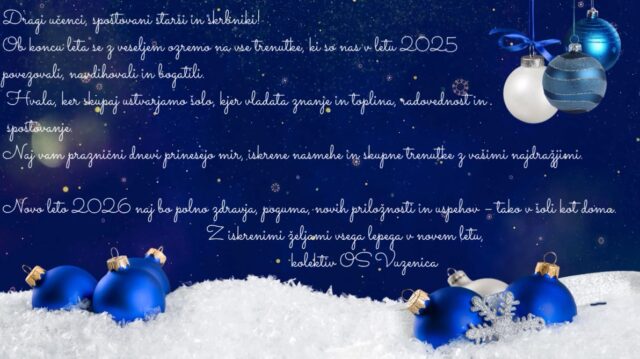 Dragi učenci, spoštovani starši in skrbniki!
Ob koncu leta se z veseljem ozremo na vse trenutke, ki so nas v letu 2025
povezovali, navdihovali in bogatili.
Hvala, ker skupaj ustvarjamo šolo, kjer vladata znanje in toplina, radovednost in
spoštovanje.
Naj vam praznični dnevi prinesejo mir, iskrene nasmehe in skupne trenutke z vašimi najdražjimi.
Novo leto 2026 naj bo polno zdravja, poguma, novih priložnosti in uspehov – tako v šoli kot doma.
Z iskrenimi željami vsega lepega v novem letu,
kolektiv OŠ Vuzenica